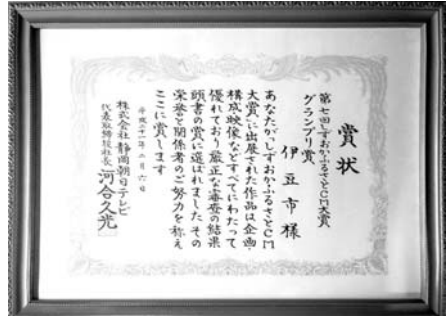 賞状
第七回しずおかふるさとCM大賞
グランプリ賞
伊豆市様
あなたがしずおかふるさとCM
大賞に出展された作品は企画・
構成映像などすべてにわたって
優れており厳正な審査の結果
頭書の賞に選ばれました その
栄誉と関係者のご努力を称え
ここに賞します
平成二十一年二月六日
株式会社静岡朝日テレビ
代表取締役社長 河合久光